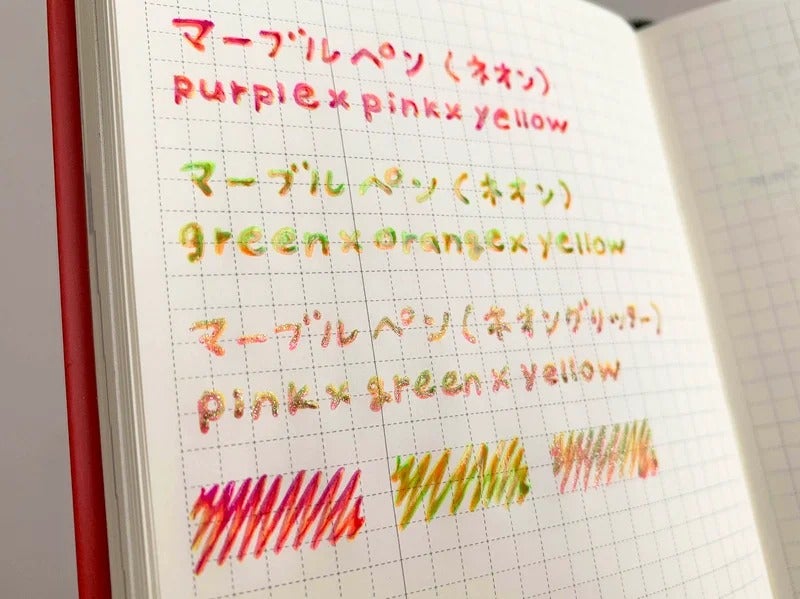 マーブルペン(ネオン)
purple x pink x yellow
マーブルペン(ネオン)
green x orange x yellow
マーブルペン(ネオングリッター)
pink x green x yellow